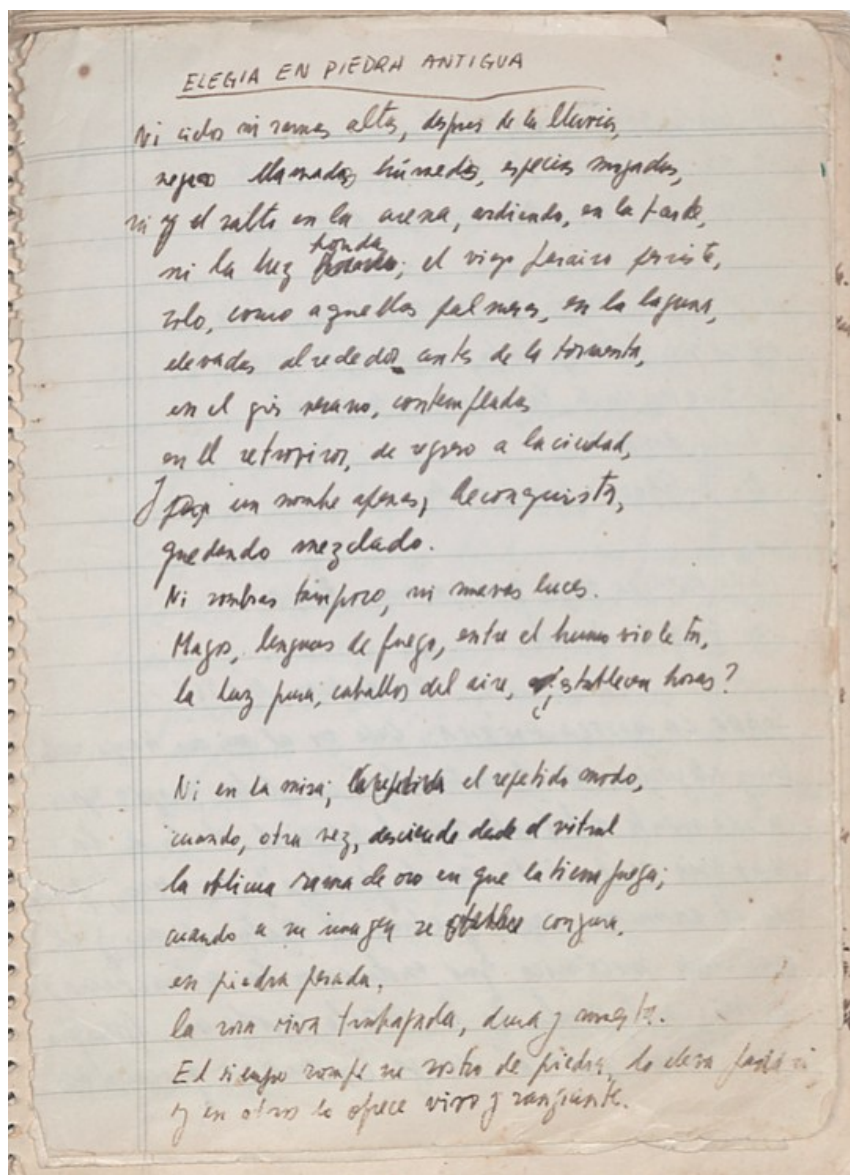 ELEGIA EN PIEDRA ANTIGUA
Ni cielos ni ramas altas, después de la lluvia,
negro llamados húmedos, especias mojadas,
ni el salto en la arena, ardiendo, en la tarde,
ni la luz honda; el viejo paraíso persiste,
solo, como aquellas palmeras, en la laguna,
elevadas alrededor antes de la tormenta,
en el gris verano, contempladas
en el retrovisor, de regreso a la ciudad,
un nombre apenas, Reconquista,
quedando mezclado.
Ni sombras tampoco, ni nuevas luces.
Magos, lenguas de fuego, entre el humo violeta,
la luz pura, caballos del aire, ¿establecen horas?
Ni en la misa, el repetido modo,
cuando, otra vez, desciende desde el vitral
la oblicua rama de oro en que la tierra juega;
cuando a su imagen se conjura,
en piedra pesada,
la rosa viva trabajada, dura y muerta.
El tiempo rompe su rostro de piedra, lo eleva
y en otros lo ofrece vivo y sangrante.